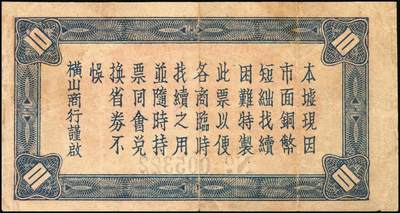 10
10
本墟現因
市面銅幣
短絀找續
困難特製
此票以便
各商臨時
找續之用
並隨時持
票同會兑
換省券不
悞
橫山商行謹啟
10
10